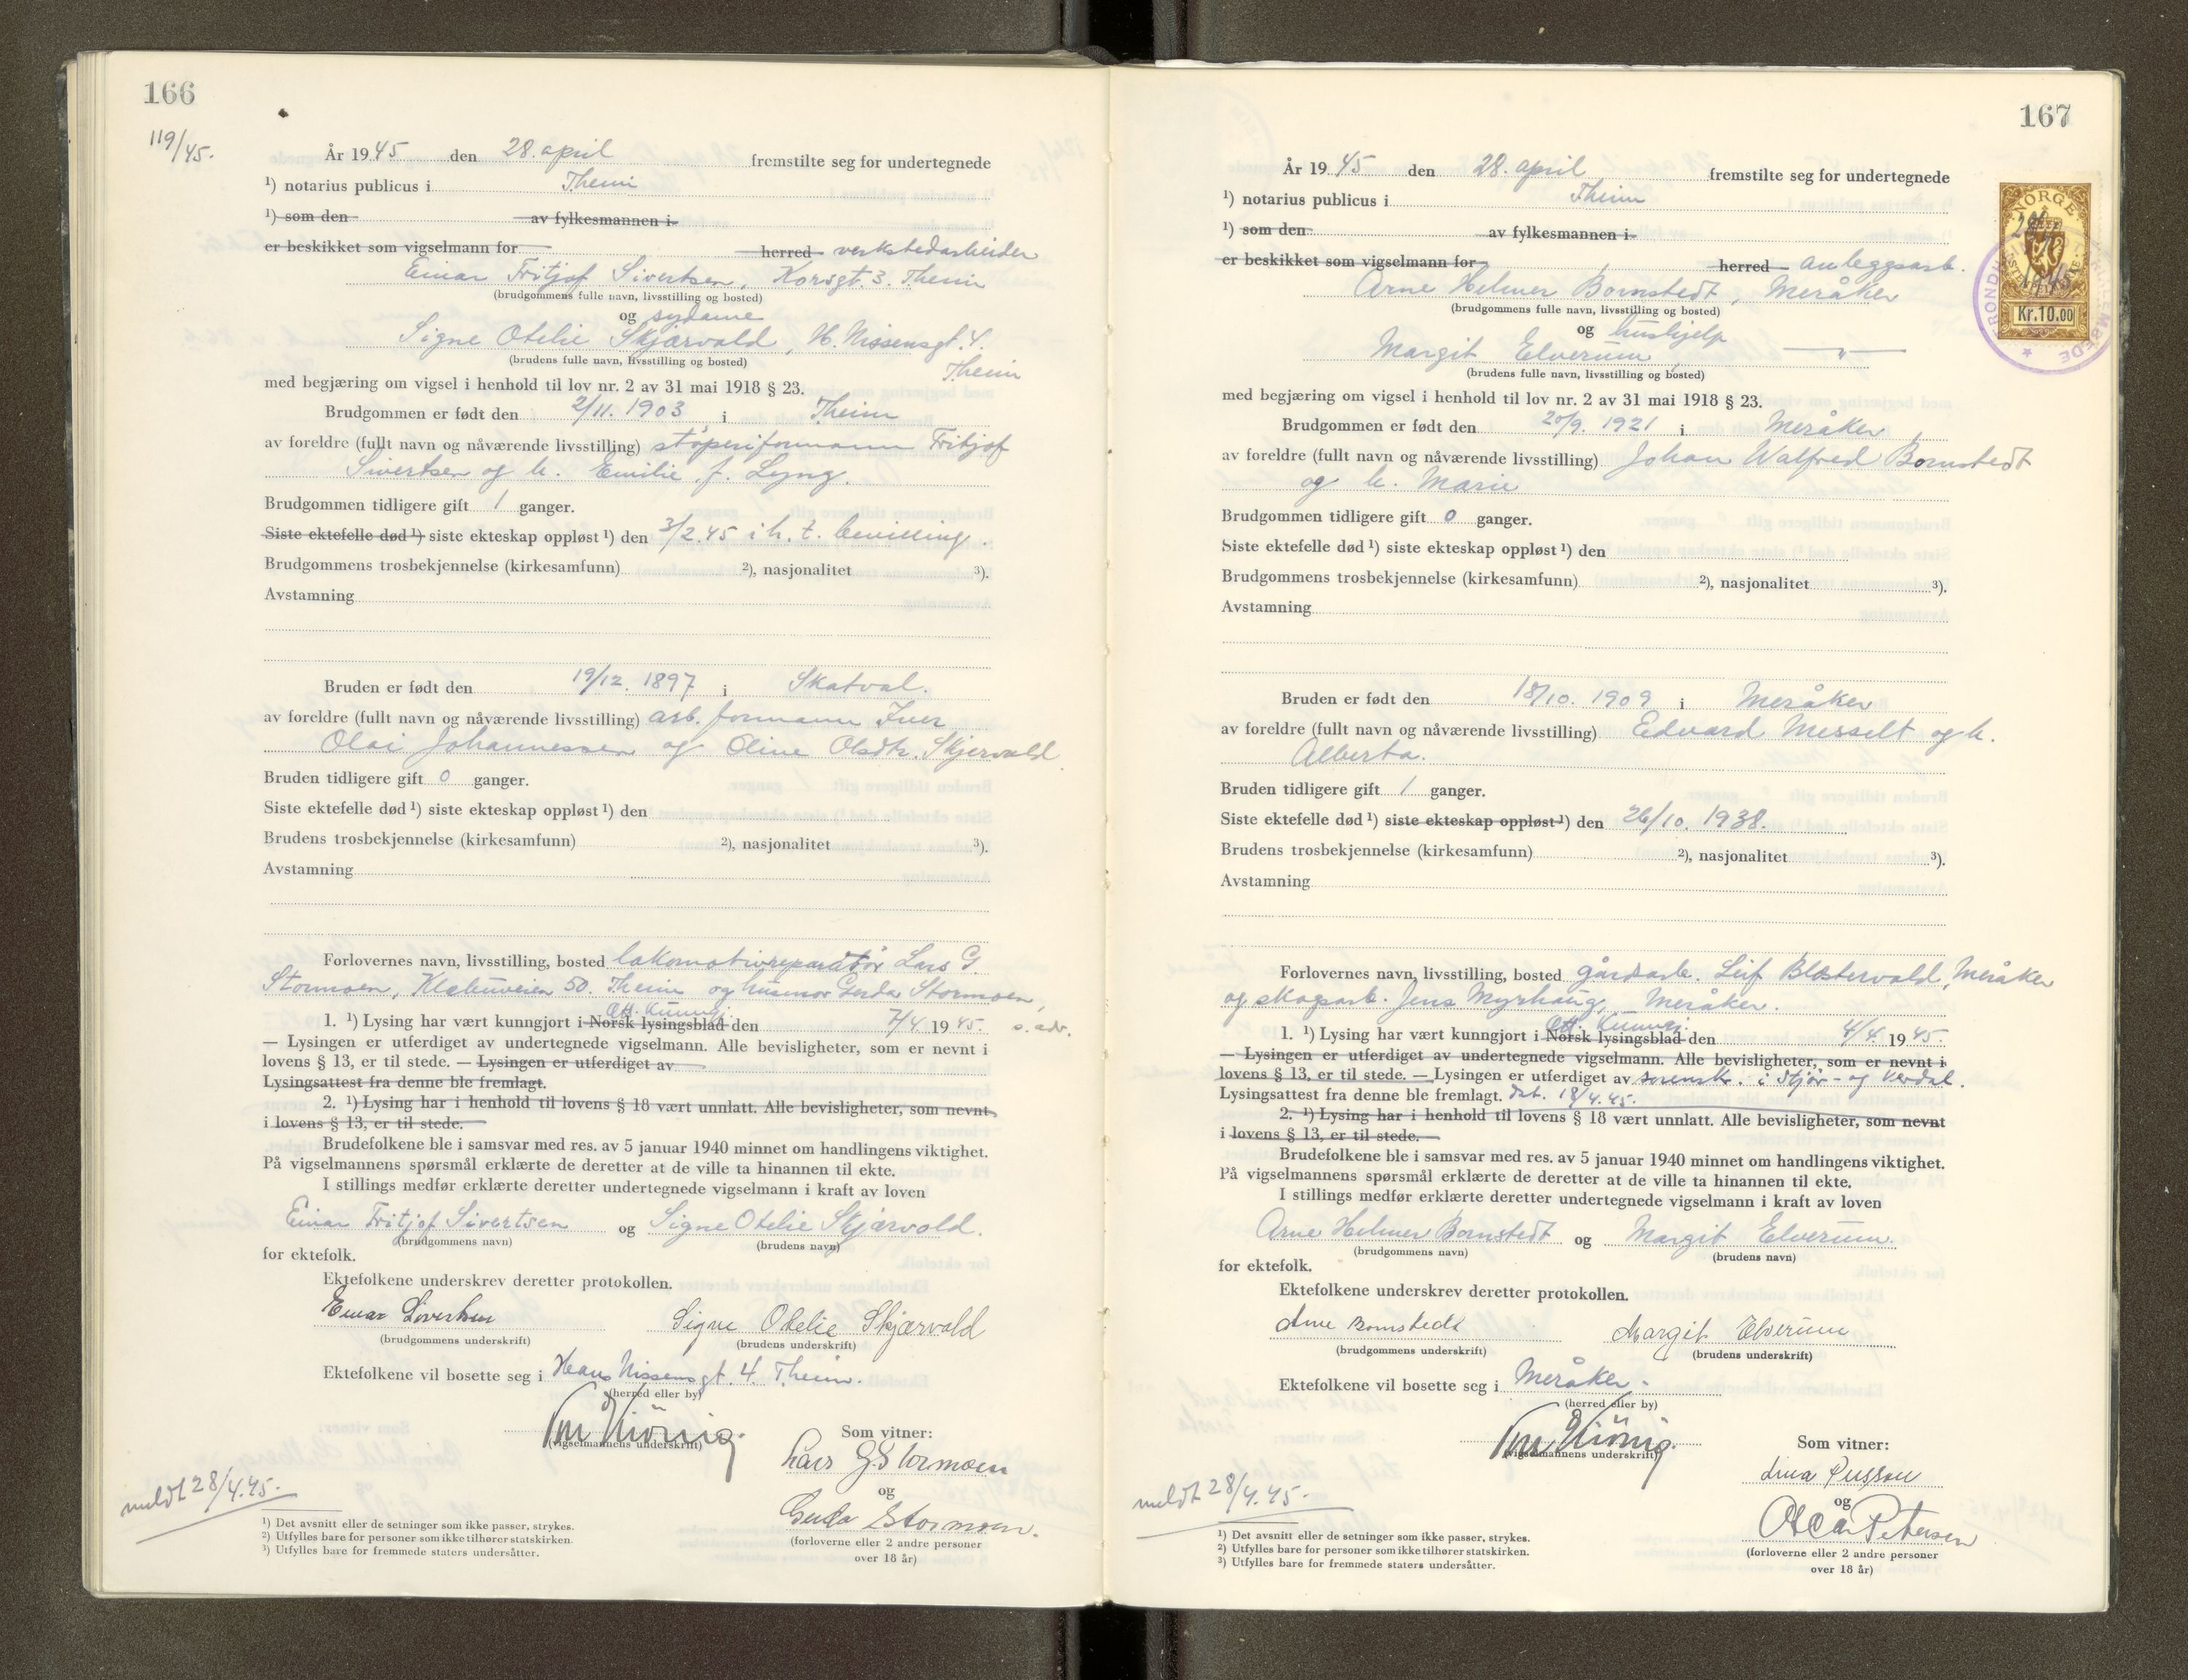 166
119/45.
År 1945 den 28. april fremstilte seg for undertegnede
1) notarius publicus i Theim
1) som den av fylkesmannen i
er beskikket som vigselmann for herred verkstedarbeider
Einar Fritjof Sivertsen, Korsgt. 3. Theim
(brudgommens fulle navn, livsstilling og bosted)
og sydame
Signe Otelie Skjærvold, H. Nissensgt. 4.
(brudens fulle navn, livsstilling og bosted)
Theim
med begjæring om vigsel i henhold til lov nr. 2 av 31 mai 1918 § 23.
Brudgommen er født den 2/11. 1903 i Theim
av foreldre (fullt navn og nåværende livsstilling) støperiformann Fritjof
Sivertsen og h. Emilie f. Lyng.
Brudgommen tidligere gift 1 ganger.
Siste ektefelle død 1) siste ekteskap oppløst 1) den 3/2.45 i h. t. bevilling.
Brudgommens trosbekjennelse (kirkesamfunn) 2), nasjonalitet 3).
Avstamning
Bruden er født den 19/12. 1897 i Skatval.
av foreldre (fullt navn og nåværende livsstilling) arb. formann Iver
Olai Johannessen og Oline Olsdtr. Skjervold
Bruden tidligere gift 0 ganger.
Siste ektefelle død 1) siste ekteskap oppløst 1) den
Brudens trosbekjennelse (kirkesamfunn) 2), nasjonalitet 3).
Avstamning
Forlovernes navn, livsstilling, bosted lokomotivreparatør Lars G.
Stormoen, Klæbuveien 50. Theim og husmor Gerda Stormoen,
s. adr.
1. 1) Lysing har vært kunngjort i Norsk lysingsblad Off. Kunngj. den 7/4 1945.
— Lysingen er utferdiget av undertegnede vigselmann. Alle bevisligheter, som er nevnt i
lovens § 13, er til stede. — Lysingen er utferdiget av
Lysingsattest fra denne ble fremlagt.
2. 1) Lysing har i henhold til lovens § 18 vært unnlatt. Alle bevisligheter, som nevnt
i lovens § 13, er til stede.
Brudefolkene ble i samsvar med res. av 5 januar 1940 minnet om handlingens viktighet.
På vigselmannens spørsmål erklærte de deretter at de ville ta hinannen til ekte.
I stillings medfør erklærte deretter undertegnede vigselmann i kraft av loven
Einar Fritjof Sivertsen og Signe Otelie Skjærvold.
(brudgommens navn) (brudens navn)
for ektefolk.
Ektefolkene underskrev deretter protokollen.
Einar Sivertsen Signe Otelie Skjærvold
(brudgommens underskrift) (brudens underskrift)
Ektefolkene vil bosette seg i Hans Nissensgt. 4. Theim.
(herred eller by)
(vigselmannens underskrift)
Som vitner:
Lars G Stormoen
og
Gerda Stormoen.
(forloverne eller 2 andre personer
over 18 år)
meldt 28/4.45.
1) Det avsnitt eller de setninger som ikke passer, strykes.
2) Utfylles bare for personer som ikke tilhører statskirken.
3) Utfylles bare for fremmede staters undersåtter.
167
År 1945 den 28. april fremstilte seg for undertegnede
1) notarius publicus i Theim
1) som den av fylkesmannen i
er beskikket som vigselmann for herred anleggsarb.
Arne Helmer Bornstedt, Meråker
(brudgommens fulle navn, livsstilling og bosted)
og hushjelp
Margit Elverum — " —
(brudens fulle navn, livsstilling og bosted)
NORGE
28/4
1945
Kr.10.00
med begjæring om vigsel i henhold til lov nr. 2 av 31 mai 1918 § 23.
Brudgommen er født den 20/9. 1921 i Meråker
av foreldre (fullt navn og nåværende livsstilling) Johan Walfred Bornstedt
og h. Marie
Brudgommen tidligere gift 0 ganger.
Siste ektefelle død 1) siste ekteskap oppløst 1) den
Brudgommens trosbekjennelse (kirkesamfunn) 2), nasjonalitet 3).
Avstamning
Bruden er født den 18/10. 1909 i Meråker
av foreldre (fullt navn og nåværende livsstilling) Edvard Messelt og h.
Alberta.
Bruden tidligere gift 1 ganger.
Siste ektefelle død 1) siste ekteskap oppløst 1) den 26/10. 1938.
Brudens trosbekjennelse (kirkesamfunn) 2), nasjonalitet 3).
Avstamning
Forlovernes navn, livsstilling, bosted gårdsarb. Leif Blåstervold, Meråker
og skogsarb. Jens Myrhaug, Meråker.
1. 1) Lysing har vært kunngjort i Norsk lysingsblad Off. Kunngj. den 4/4. 1945.
— Lysingen er utferdiget av undertegnede vigselmann. Alle bevisligheter, som er nevnt i
lovens § 13, er til stede. — Lysingen er utferdiget av sorensk. i Stjør- og Verdal.
Lysingsattest fra denne ble fremlagt. dat. 18/4.45.
2. 1) Lysing har i henhold til lovens § 18 vært unnlatt. Alle bevisligheter, som nevnt
i lovens § 13, er til stede.
Brudefolkene ble i samsvar med res. av 5 januar 1940 minnet om handlingens viktighet.
På vigselmannens spørsmål erklærte de deretter at de ville ta hinannen til ekte.
I stillings medfør erklærte deretter undertegnede vigselmann i kraft av loven
Arne Helmer Bornstedt og Margit Elverum.
(brudgommens navn) (brudens navn)
for ektefolk.
Ektefolkene underskrev deretter protokollen.
Arne Bornstedt Margit Elverum
(brudgommens underskrift) (brudens underskrift)
Ektefolkene vil bosette seg i Meråker.
(herred eller by)
(vigselmannens underskrift)
Som vitner:
og
Petersen
(forloverne eller 2 andre personer
over 18 år)
meldt 28/4.45.
1) Det avsnitt eller de setninger som ikke passer, strykes.
2) Utfylles bare for personer som ikke tilhører statskirken.
3) Utfylles bare for fremmede staters undersåtter.